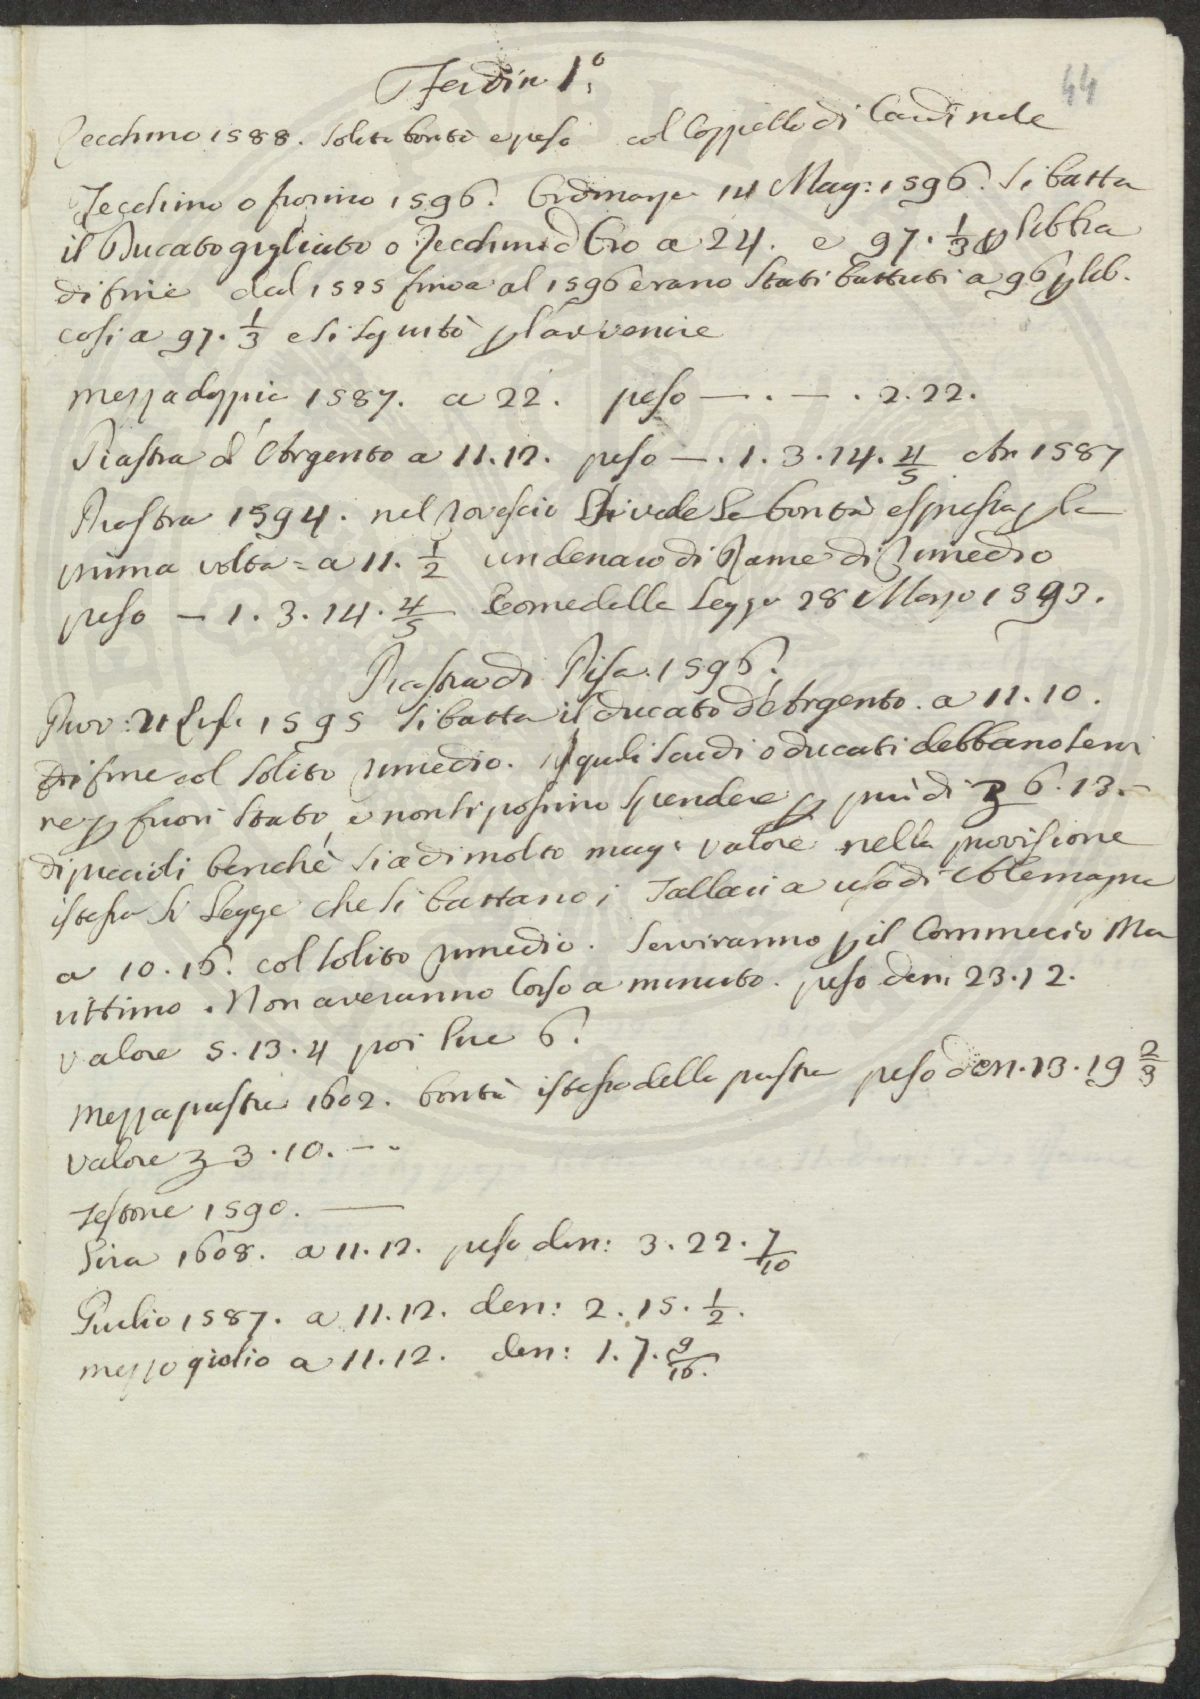 Ferdin. 1.º
44
Zecchino 1588. solita bontà e peso col Cappello di Cardinale
Zecchino o fiorino 1596. Ordinanza 14 Mag: 1596. si batta
il Ducato gigliato o Zecchino d'Oro a 24. e 97. 1/3 p libbra
di fine dal 1595 fino al 1596 erano stati battuti a 96 p lib.
così a 97. 1/3 e si seguitò p l'avvenire
mezza doppia 1587. a 22. peso — . — . 2. 22.
Piastra d'Argento a 11. 12. peso — . 1. 3. 14. 4/5 An 1587
Piastra 1594. nel rovescio si vede la bontà espressa p la
prima volta = a 11. 1/2 un denaro di Rame di rimedio
peso — 1. 3. 14. 4/5 Come della Legge 28 Marzo 1593.
Piastra di Pisa. 1596.
Prov: 21 1595 si batta il ducato d'Argento. a 11. 10.
di fine col solito rimedio. I quali scudi o ducati debbano servi
re p fuori stato, e non si possino spendere p più di 6. 13. -
di piccioli benchè sia di molto mag: valore nella provisione
istessa si Legge che si battano i Tallari a uso di Alemagna
a 10. 16. col solito rimedio. serviranno p il Commercio Ma
rittimo. Non averanno Corso a minuto. peso den. 23. 12.
valore 5. 13. 4 poi lire 6.
mezza piastra 1602. bontà istessa della piastra peso den. 13. 19 2/3
valore 3. 10. — .
Testone 1590. —
Lira 1608. a 11. 12. peso den: 3. 22. 7/10
Giulio 1587. a 11. 12. den: 2. 15. 1/2.
mezzo giulio a 11. 12. den: 1. 7. 9/16.